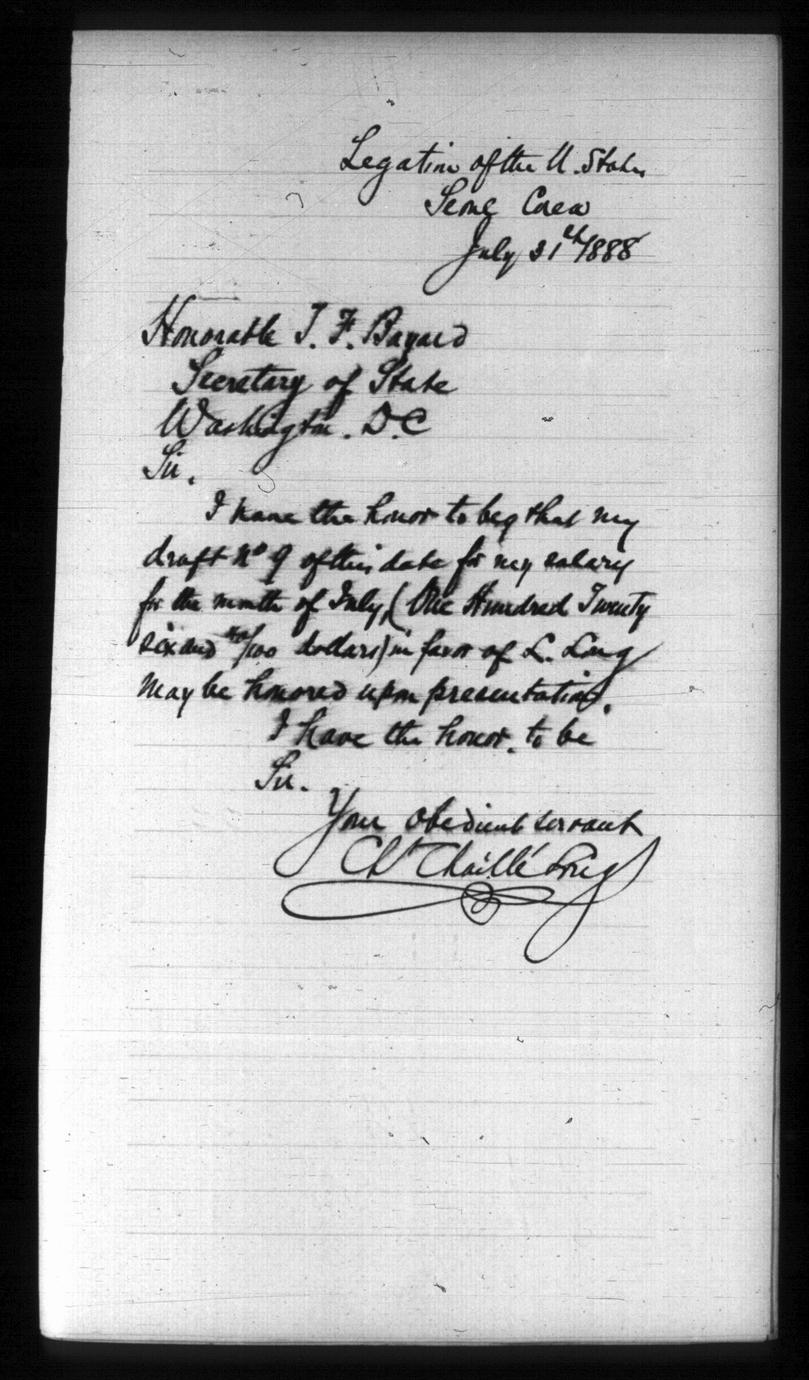 Legation of the U. States
Seoul Corea
July 31th 1888
Honorable T. F. Bayard
Secretary of State
Washington. D.C
Sir,
I have the honor to beg that my
draft No 9 of this date for my salary
for the month of July, (One Hundred Twenty
six and /100 dollars) in favor of L. Long
may be honored upon presentation.
I have the honor. to be
Sir.
Your obedient servant
Chs Chaillé Long